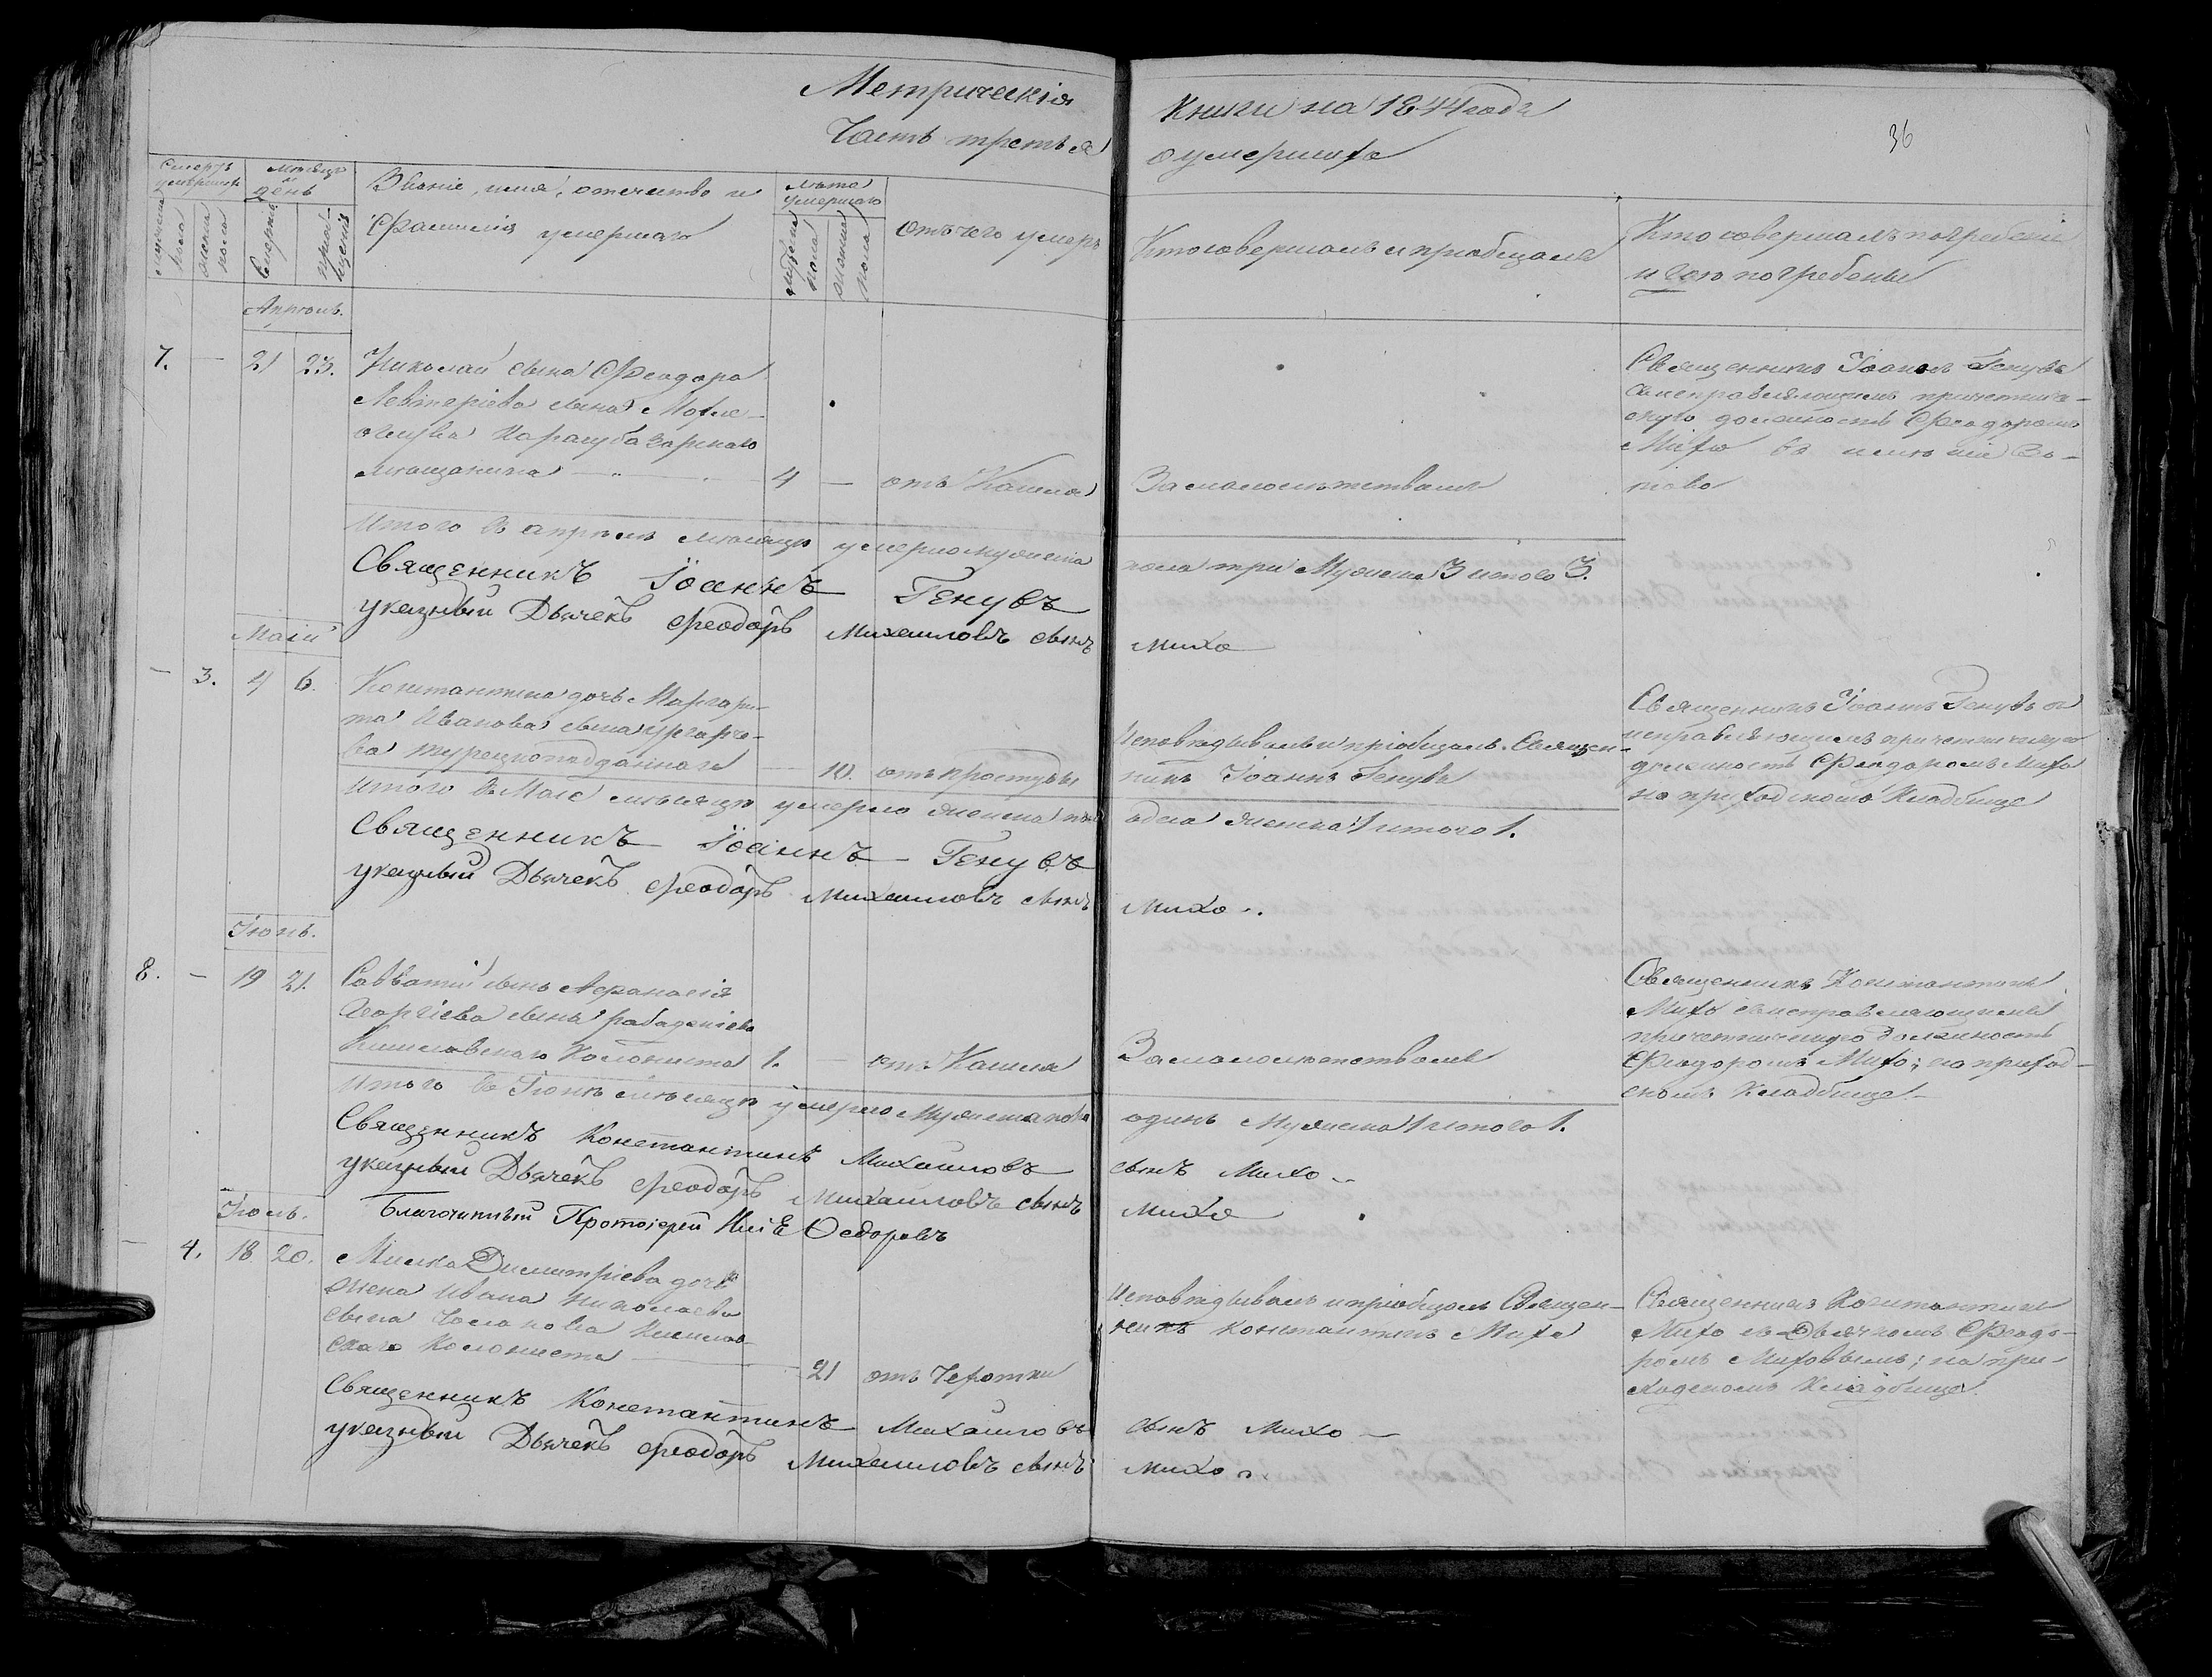 Метрическія
Книги на 1844 годъ
36
Часть третья
о умершихъ
Счетъ умершихъ
Мѣсяцъ и день
Званіе, имя, отечество и
фамилія умершаго
лѣта умершаго
отъ чего умеръ
Кто исповѣдывалъ и пріобщалъ
Кто совершалъ погребеніе
и гдѣ погребены
мужеска пола
женска пола
Смерти
погребенія
мужеска пола
женска пола
Апрѣль.
7. — 21 23.
Николай сынъ Феодора
Левтеріева сына
Карасубазарскаго
мѣщанина — 4 — отъ Кашля
За малолѣтствомъ
Священникъ Іоаннъ Генувъ
съ исправляющимъ причетниче-
скую должность Феодоромъ
Михо въ имѣніи
Итого въ апрѣлѣ мѣсяцѣ умерло мужеска
пола три Мужеска 3 итого 3.
Священникъ Іоаннъ Генувъ
указный Дьячекъ Феодоръ Михаиловъ сынъ
Михо
Маій
— 3. 4 6.
Константина дочь Маргари-
та Иванова сына
турецкоподданнаго — 10. отъ простуды
Исповѣдывалъ и пріобщалъ Священ-
никъ Іоаннъ Генувъ
Священникъ Іоаннъ Генувъ съ
исправляющимъ причетническую
должность Феодоромъ Михо
на приходскомъ Кладбище
Итого въ Маіѣ мѣсяцѣ умерло женска пола
одна женска 1 итого 1.
Священникъ Іоаннъ Генувъ
указный Дьячекъ Феодоръ Михаиловъ сынъ
Михо.
Іюнь.
8. — 19 21.
Савватій сынъ Афанасія
Георгіева сына
Кишлавскаго Колониста 1. — отъ Кашля
За малолѣтствомъ
Священникъ Константинъ
Михо съ исправляющимъ
причетническую должность
Феодоромъ Михо; на приход-
скомъ Кладбище.
Итого въ Іюнѣ мѣсяцѣ умерло Мужеска пола
одинъ Мужеска 1 итого 1.
Священникъ Константинъ Михаиловъ
сынъ Михо
указный Дьячекъ Феодоръ Михаиловъ сынъ
Михо
Благочинный Протоіерей Ѳедоровъ
Іюль.
— 4. 18 20.
Милка Димитріева дочь
жена Ивана Николаева
сына Кишлав-
скаго Колониста — 21 отъ Чехотки
Исповѣдывалъ и пріобщалъ Священ-
никъ Константинъ Михо
Священникъ Константинъ
Михо съ Дьячкомъ Феодо-
ромъ Миховымъ; на при-
ходскомъ Кладбище.
Священникъ Константинъ Михаиловъ
сынъ Михо
указный Дьячекъ Феодоръ Михаиловъ сынъ
Михо